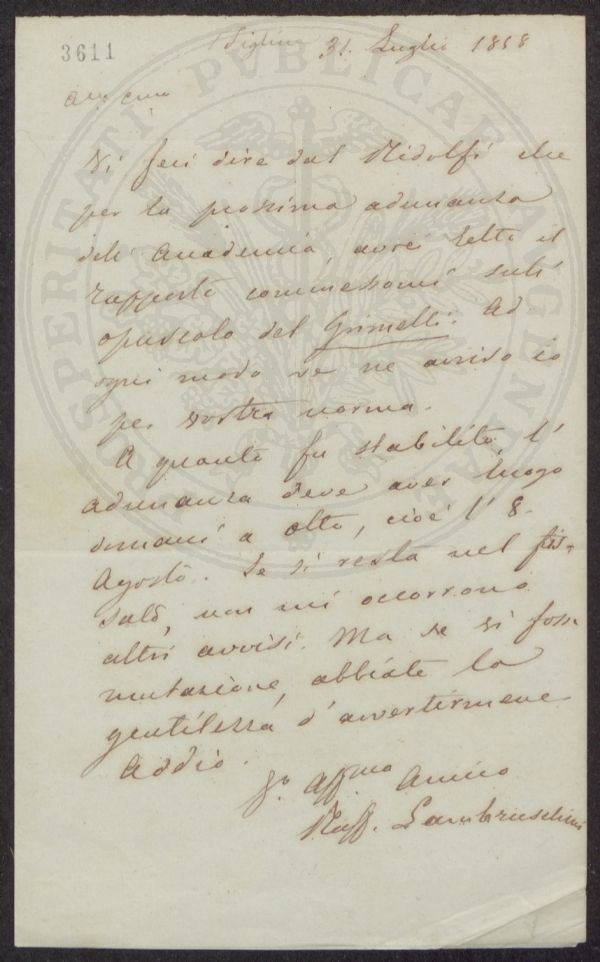 3611
Figline 31. Luglio 1858
Amo Cmo
Vi feci dire dal Ridolfi che
per la prossima adunanza
dell' Accademia, avrei letto il
rapporto commessomi sull'
opuscolo del Grimelli. Ad
ogni modo ve ne avviso io
per vostra norma.
A quanto fu stabilito, l'
adunanza deve aver luogo
domani a otto, cioè l' 8.
Agosto. Se si resta nel fis-
sato, non mi occorrono
altri avvisi. Ma se vi fosse
mutazione, abbiate la
gentilezza d'avvertirmene
Addio.
Affmo Amico
Raff. Lambruschini
PROSPERITATI PVBLICAE AVGENDAE